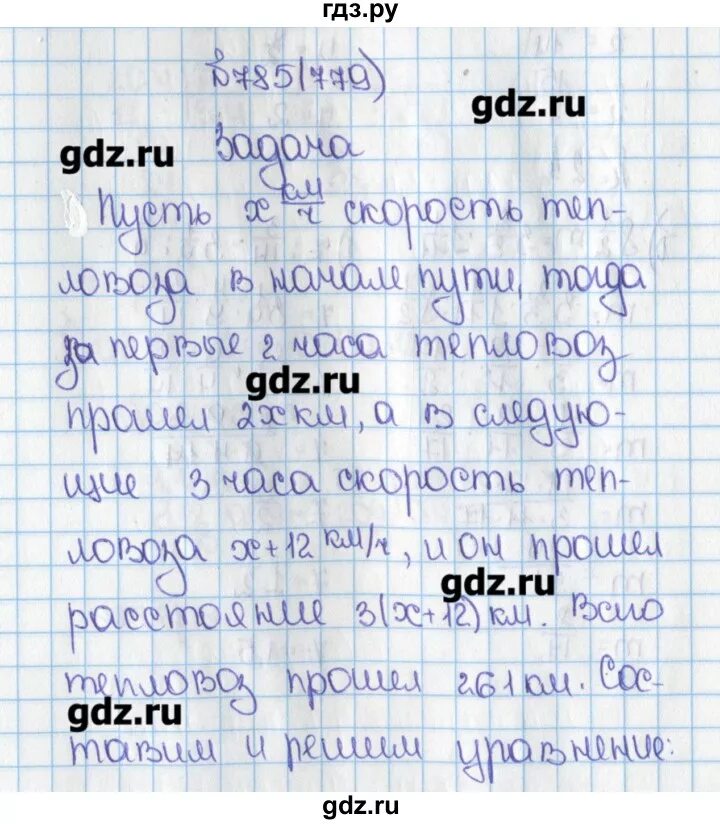 гдз.ру
№785(779)
gdz.ru
Задача
gdz.ru
Пусть x км/ч скорость теп-
ловоза в начале пути, тогда
за первые 2 часа тепловоз
gdz.ru
прошел 2x км, а в следую-
щие 3 часа скорость теп-
ловоза x+12 км/ч, и он прошел
gdz.ru
расстояние 3(x+12) км. Всио
тепловоз прошел 261 км. Сос-
gdz.ru
тавим и решим уравнение:
gdz.ru